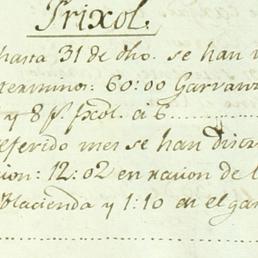 Trixol.
hasta 31 de dho. se han
termino: 60:00 Garvan
y 8 p. fxol. a 6
referido mes se han
ion: 12:02 en racion de
Hacienda y 1:10 en el